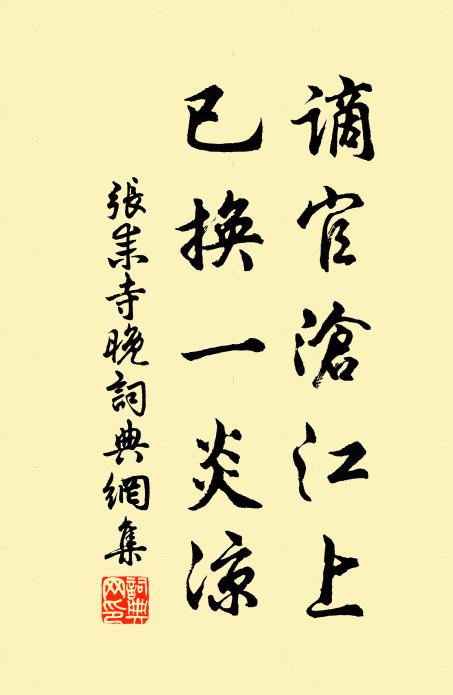 謫官滄江上
已換一炎涼
張耒寺晚詞典網集
詞典網印